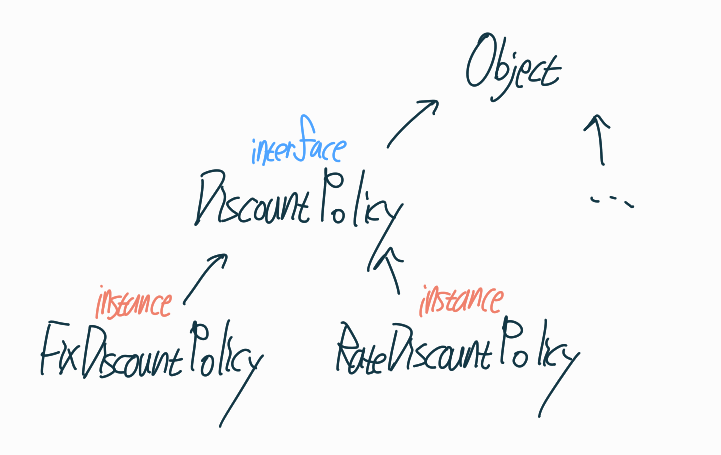 Object
interface
DiscountPolicy
...
instance
instance
FixDiscountPolicy
RateDiscountPolicy